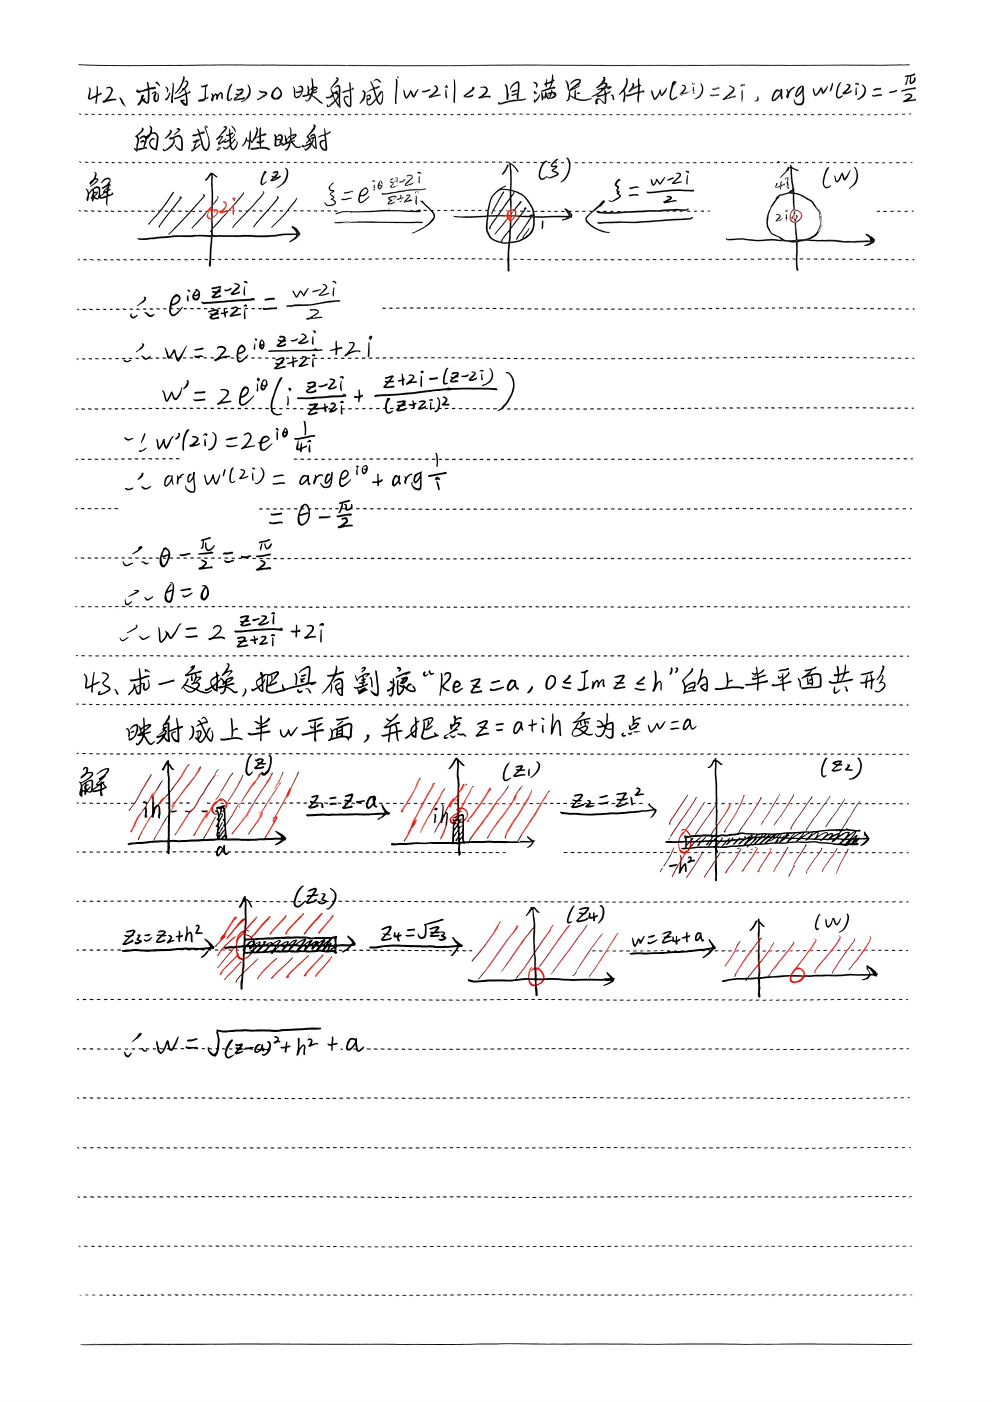 42、求将Im(z)>0映射成|w-2i|<2且满足条件w(2i)=2i, arg w'(2i)=-π/2
的分式线性映射
解 (z) ξ=e^{iθ}\frac{z-2i}{z+2i} (ξ) ξ=\frac{w-2i}{2} 4i (w)
2i 1 2i
∴ e^{iθ}\frac{z-2i}{z+2i}=\frac{w-2i}{2}
∴ w=2e^{iθ}\frac{z-2i}{z+2i}+2i
w'=2e^{iθ}(i\frac{z-2i}{z+2i}+\frac{z+2i-(z-2i)}{(z+2i)^2})
∵ w'(2i)=2e^{iθ}\frac{1}{4i}
∴ arg w'(2i)=arg e^{iθ}+arg\frac{1}{i}
=θ-\frac{π}{2}
∴ θ-\frac{π}{2}=-\frac{π}{2}
∴ θ=0
∴ w=2\frac{z-2i}{z+2i}+2i
43、求一变换,把具有割痕“Re z=a, 0≤Im z≤h”的上半平面共形
映射成上半w平面,并把点z=a+ih变为点w=a
解 (z) z₁=z-a (z₁) z₂=z₁² (z₂)
ih a ih -h²
z₃=z₂+h² (z₃) z₄=√z₃ (z₄) w=z₄+a (w)
∴ w=\sqrt{(z-a)^2+h^2}+a